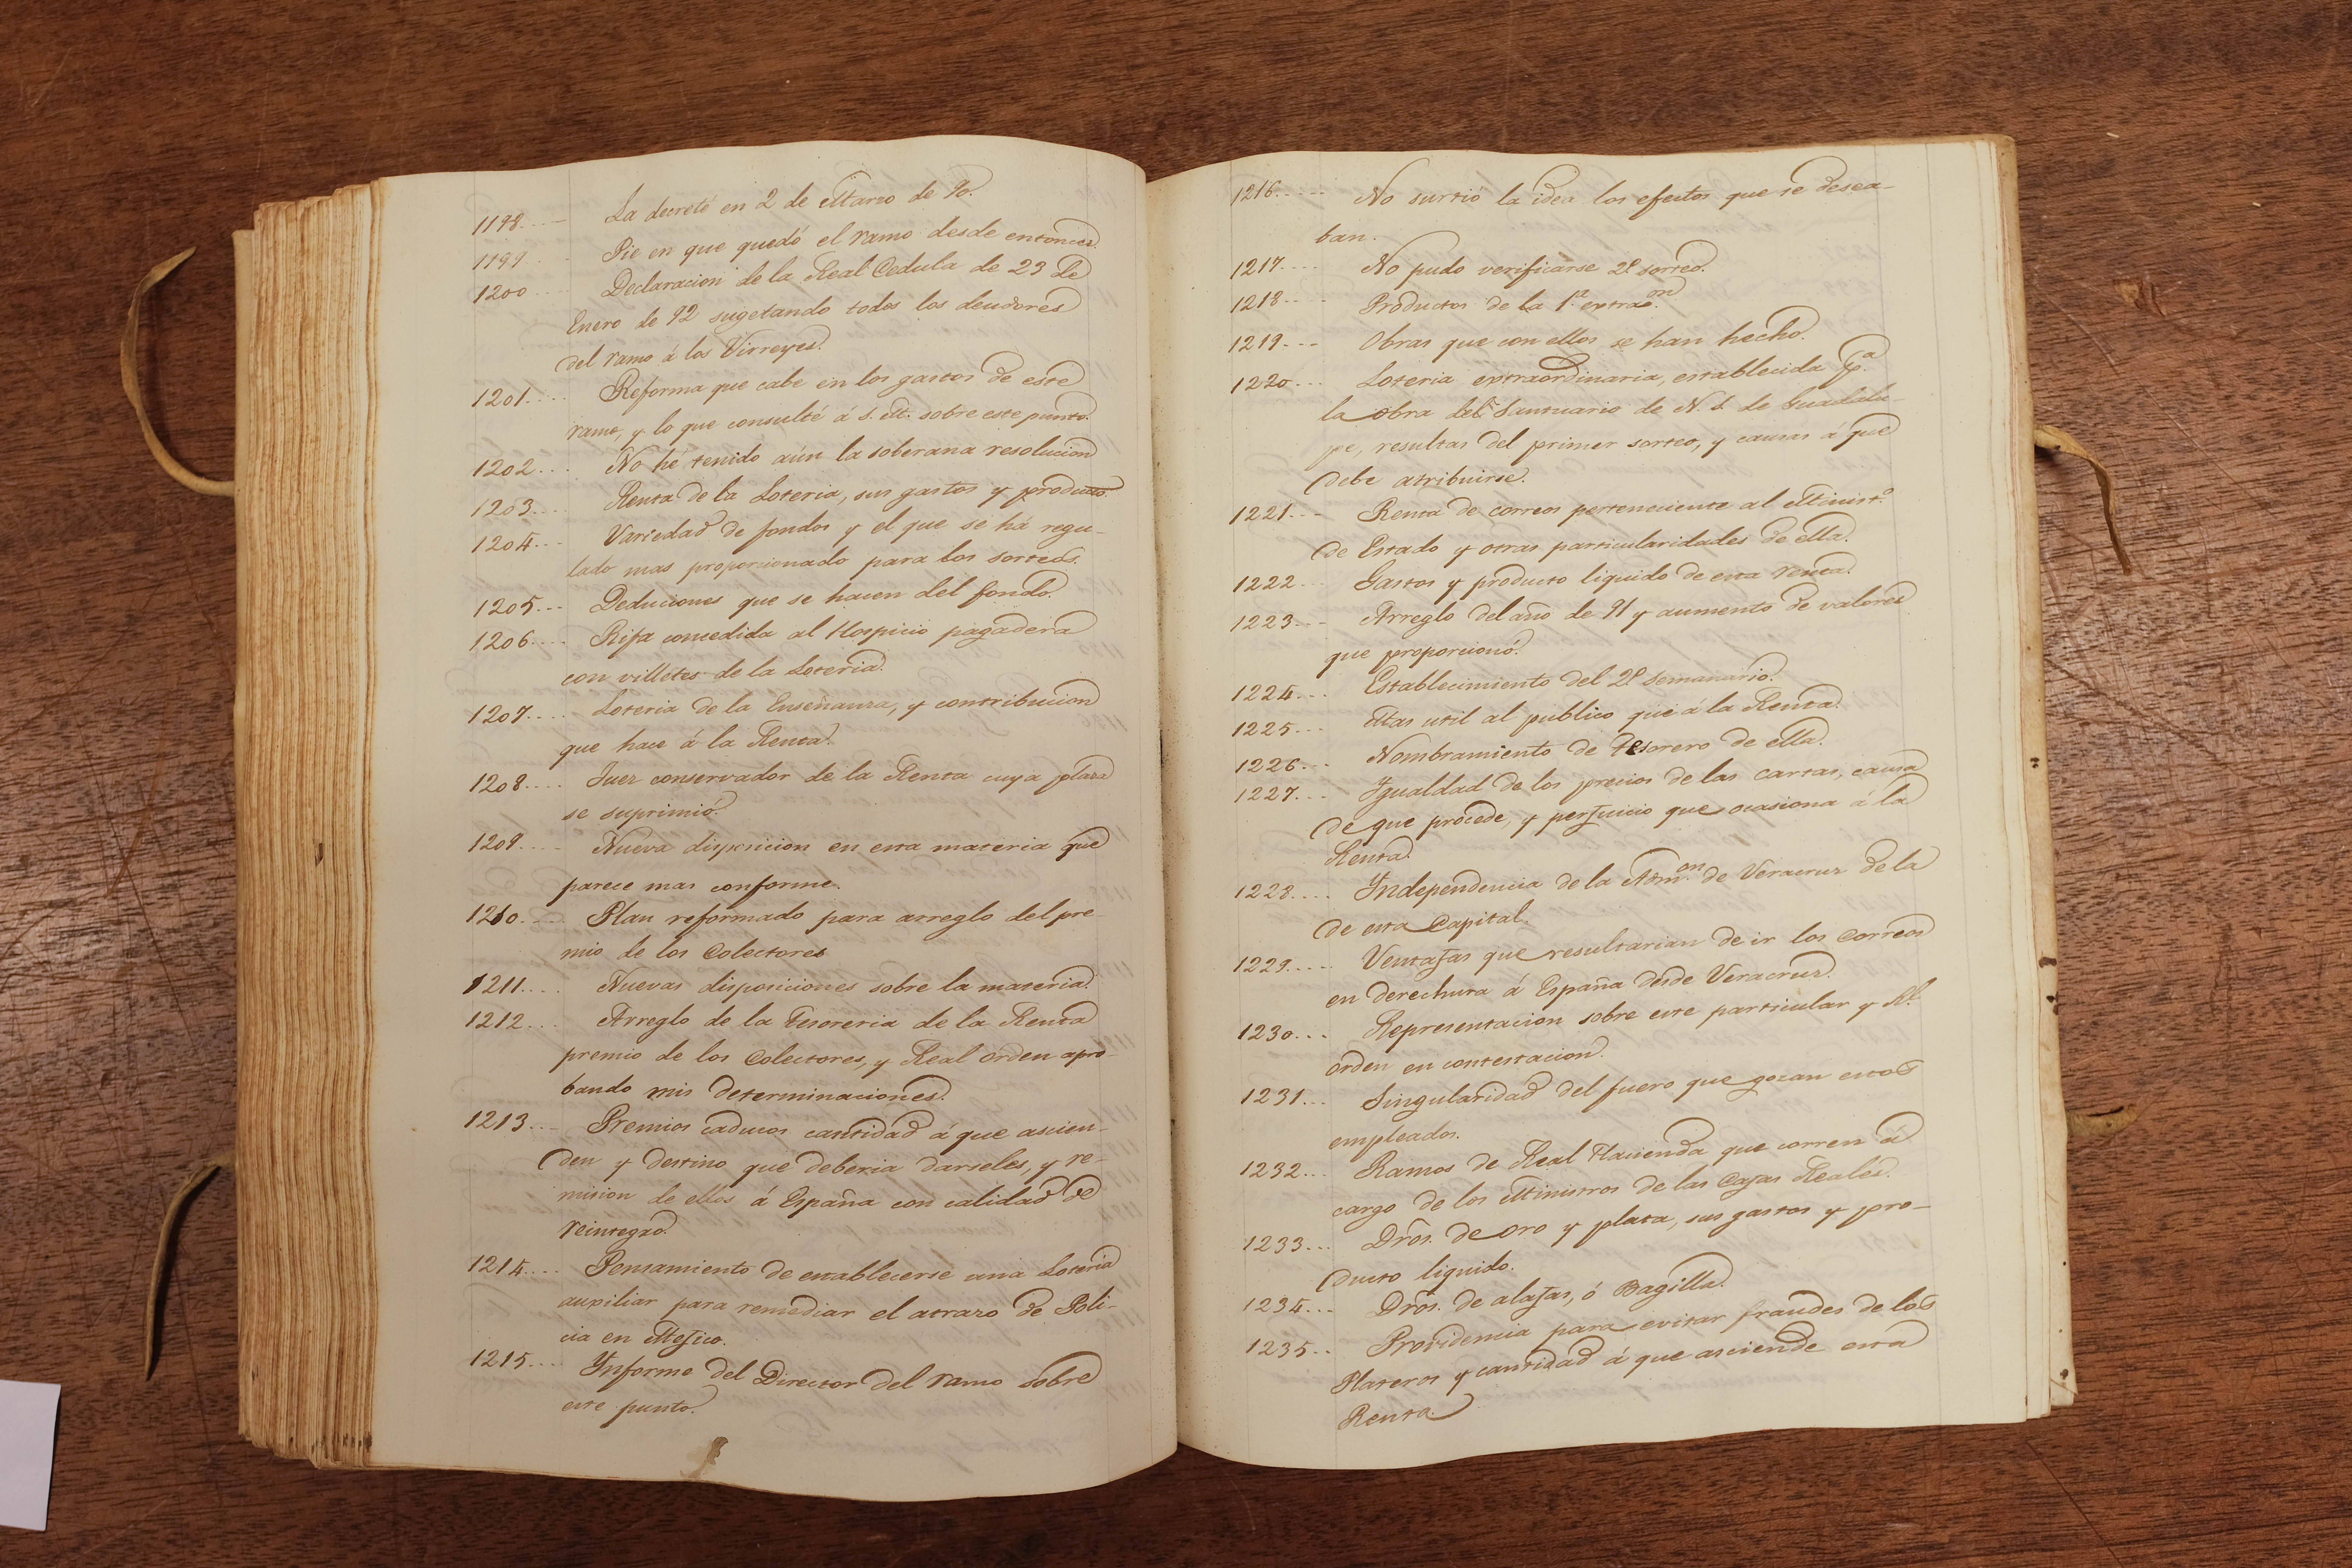 1198.... La decreté en 2 de Marzo de 90.
1199.. Pie en que quedó el ramo desde entonces.
1200.... Declaracion de la Real Cedula de 23 de
Enero de 92 sugetando todos los deudores
del ramo á los Virreyes.
1201.... Reforma que cabe en los gastos de este
ramo, y lo que consulté á S. M. sobre este punto.
1202... No hé tenido aún la soberana resolucion
1203.... Renta de la Loteria, sus gastos y producto.
1204... Variedad de fondos y el que se há regu-
lado mas proporcionado para los sorteos.
1205... Deduciones que se hacen del fondo.
1206.... Rifa concedida al Hospicio pagadera
con villetes de la Loteria.
1207.... Loteria de la Enseñanza, y contribucion
que hace á la Renta.
1208.... Juez conservador de la Renta cuya plaza
se suprimió.
1209.... Nueva disposicion en esta materia que
parece mas conforme.
1210.... Plan reformado para arreglo del pre-
mio de los Colectores
1211.... Nuevas disposiciones sobre la materia.
1212... Arreglo de la Tesoreria de la Renta
premio de los Colectores, y Real orden apro-
bando mis determinaciones.
1213... Premios caducos cantidad á que ascien-
den y destino que deberia darseles, y re-
mision de ellos á España con calidad de
reintegro.
1214.... Pensamiento de establecerse una Loteria
auxiliar para remediar el atrazo de Poli-
cia en Mexico.
1215.... Ynforme del Director del ramo sobre
este punto.
1216..... No surtió la idea los efectos que se desea-
ban.
1217.... No pudo verificarse 2º sorteo.
1218... Productos de la 1ª extracon.
1219... Obras que con ellos se han hecho.
1220... Loteria extraordinaria, establecida pa.
la obra del Santuario de N. S. de Guadalu-
pe, resultas del primer sorteo, y causas á que
debe atribuirse.
1221... Renta de correos perteneciente al Ministº
de Estado y otras particularidades de ella.
1222. Gastos y producto liquido de esta renta.
1223... Arreglo del año de 91 y aumento de valores
que proporcionó.
1224... Establecimiento del 2º semanario.
1225... Mas util al publico que á la Renta.
1226... Nombramiento de Tesorero de ella.
1227... Ygualdad de los precios de las cartas, causa
de que procede, y perjuicio que ocasiona á la
Renta.
1228.... Yndependencia de la Admon. de Veracruz de la
de esta Capital.
1229..... Ventajas que resultarian de ir los correos
en derechura á España desde Veracruz.
1230... Representacion sobre este particular y Rl.
orden en contestacion.
1231... Singularidad del fuero que gozan estos
empleados.
1232... Ramos de Real Hacienda que corren á
cargo de los Ministros de las Cajas Reales.
1233... Dros. de oro y plata, sus gastos y pro-
ducto liquido.
1234... Dros. de alajas, ó Bagilla.
1235.. Providencia para evitar fraudes de los
Plateros y cantidad á que asciende esta
Renta.